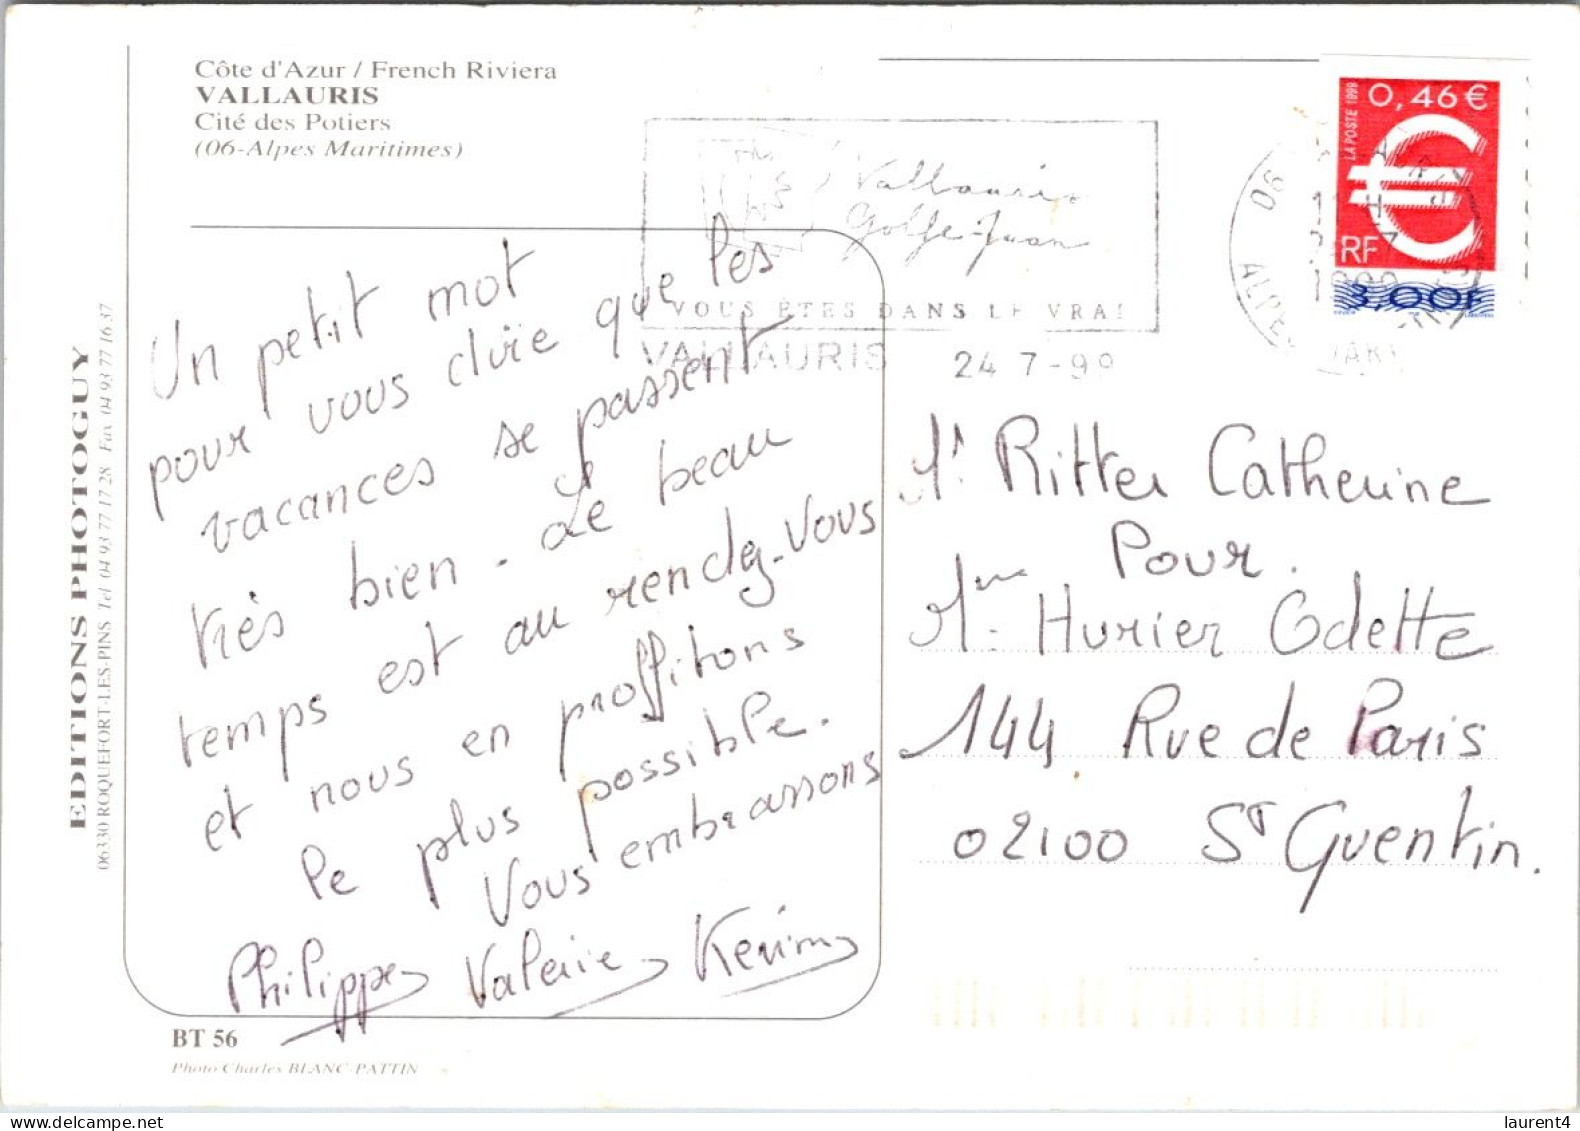 Côte d'Azur / French Riviera
VALLAURIS
Cité des Potiers
(06-Alpes Maritimes)
EDITIONS PHOTOGUY
06330 ROQUEFORT-LES-PINS Tel 04 93 77 17 28 Fax 04 93 77 16 37
Un petit mot
pour vous dire que les
vacances se passent
très bien - Le beau
temps est au rendez-vous
et nous en proffitons
le plus possible.
Vous embrassons
Philippe Valérie Kevin
BT 56
Photo Charles BLANC-PATTIN
Vallauris
Golfe-Juan
VOUS ÊTES DANS LE VRAI
VALLAURIS 24 7-99
06
ALPES
LA POSTE 1999
0,46 €
€
RF
3,00F
Ritter Catherine
Pour.
Mme Hurier Odette
144 Rue de Paris
02100 St Quentin.
laurent4